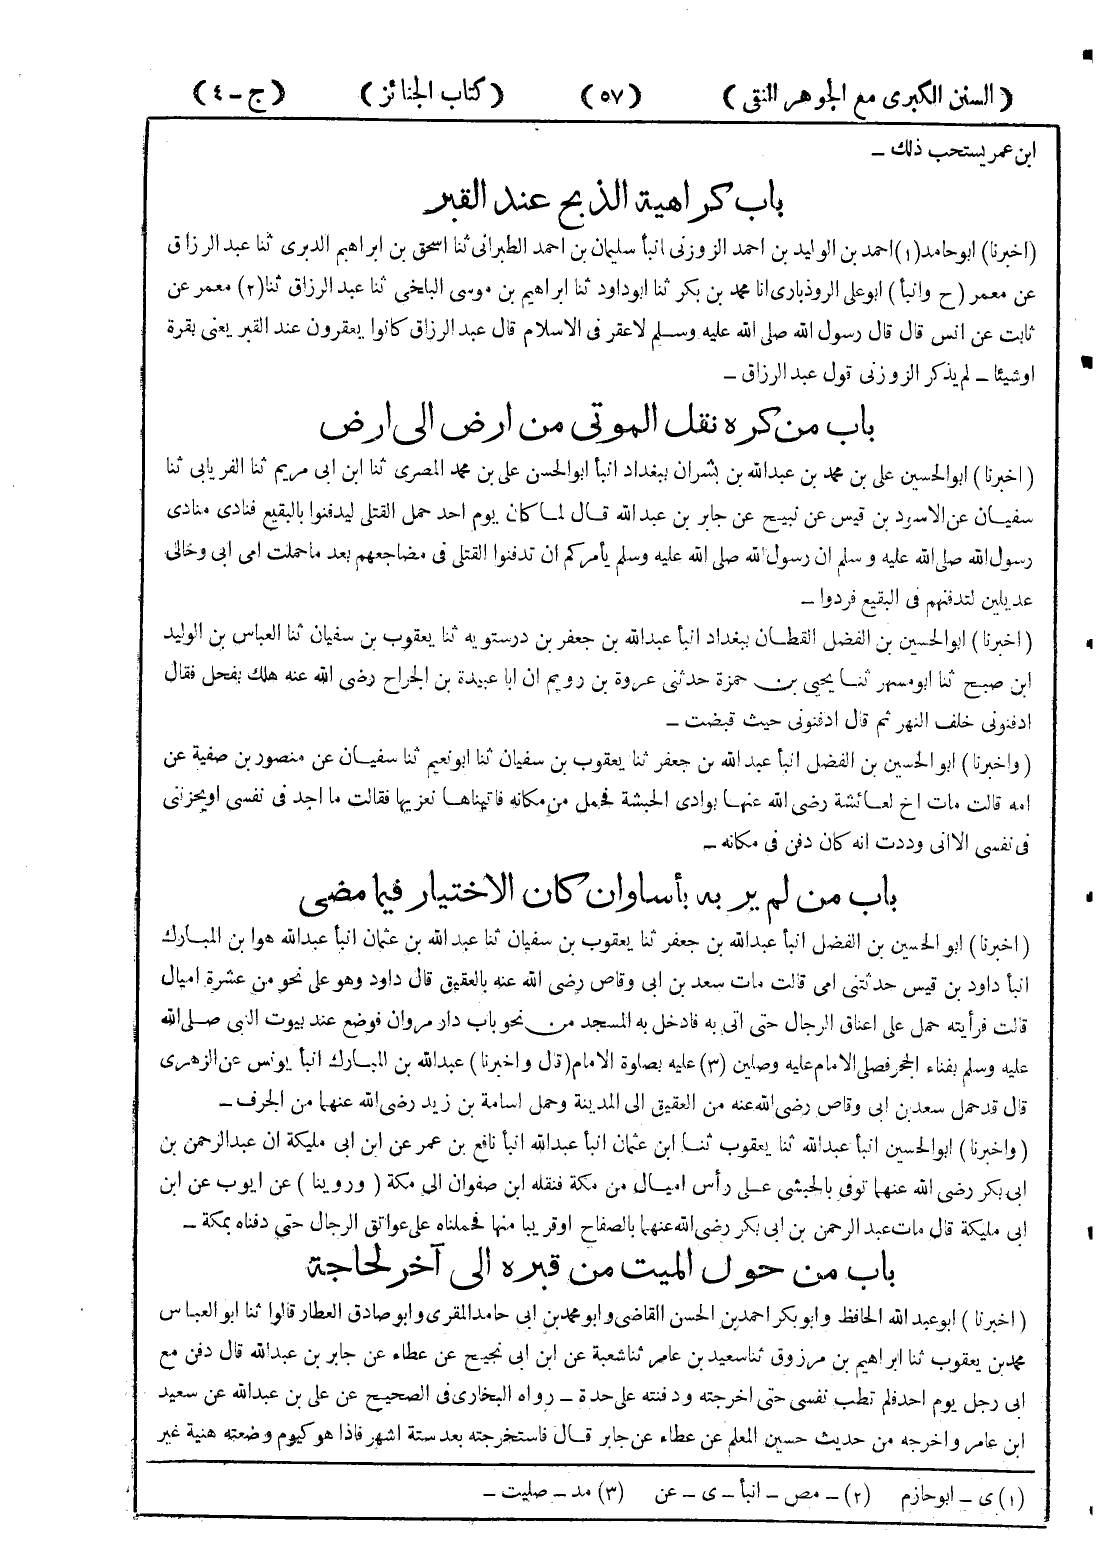 (السنن الكبرى مع الجوهر النقى) (٥٧) (كتاب الجنائز) (ج-٤)
ابن عمر يستحب ذلك –
باب كراهية الذبح عند القبر
(اخبرنا) ابوحامد(١)احمد بن الوليد بن احمد الزوزنى انبأ سليمان بن احمد الطبرانى ثنا اسحق بن ابراهيم الدبرى ثنا عبد الرزاق
عن معمر (ح وانبأ) ابوعلى الروذبارى انا محمد بن بكر ثنا ابوداود ثنا ابراهيم بن موسى البلخى ثنا عبد الرزاق ثنا(٢) معمر عن
ثابت عن انس قال قال رسول الله صلى الله عليه وسلم لاعقر فى الاسلام قال عبد الرزاق كانوا يعقرون عند القبر يعنى بقرة
اوشيئا – لم يذكر الزوزنى قول عبد الرزاق –
باب من كره نقل الموتى من ارض الى ارض
(اخبرنا) ابوالحسين على بن محمد بن عبدالله بن بشران ببغداد انبأ ابوالحسن على بن محمد المصرى ثنا ابن ابى مريم ثنا الفريابى ثنا
سفيان عن الاسود بن قيس عن نبيح عن جابر بن عبد الله قال لما كان يوم احد حمل القتلى ليدفنوا بالبقيع فنادى منادى
رسول الله صلى الله عليه وسلم ان رسول الله صلى الله عليه وسلم يأمركم ان تدفنوا القتلى فى مضاجعهم بعد ماحملت امى ابى وخالى
عديلين لتدفنهم فى البقيع فردوا –
(اخبرنا) ابوالحسين بن الفضل القطان ببغداد انبأ عبدالله بن جعفر بن درستويه ثنا يعقوب بن سفيان ثنا العباس بن الوليد
ابن صبح ثنا ابومسهر ثنا يحيى بن حمزة حدثنى عروة بن رويم ان ابا عبيدة بن الجراح رضى الله عنه هلك بفحل فقال
ادفنونى خلف النهر ثم قال ادفنونى حيث قبضت –
(واخبرنا) ابو الحسين بن الفضل انبأ عبد الله بن جعفر ثنا يعقوب بن سفيان ثنا ابونعيم ثنا سفيان عن منصور بن صفية عن
امه قالت مات اخ لعائشة رضى الله عنها بوادى الحبشة فحمل من مكانه فاتيناها نعزيها فقالت ما اجد فى نفسى اويحزننى
فى نفسى الاانى وددت انه كان دفن فى مكانه –
باب من لم ير به بأسا وان كان الاختيار فيما مضى
(اخبرنا) ابو الحسين بن الفضل انبأ عبدالله بن جعفر ثنا يعقوب بن سفيان ثنا عبد الله بن عثمان انبأ عبدالله هوا بن المبارك
انبأ داود بن قيس حدثتنى امى قالت مات سعد بن ابى وقاص رضى الله عنه بالعقيق قال داود وهو على نحو من عشرة اميال
قالت فرأيته حمل على اعناق الرجال حتى اتى به فادخل به المسجد من نحو باب دار مروان فوضع عند بيوت النبى صلى الله
عليه وسلم بفناء الحجر فصلى الامام عليه وصلين (٣) عليه بصلوة الامام(قال واخبرنا) عبدالله بن المبارك انبأ يونس عن الزهرى
قال قد حمل سعد بن ابى وقاص رضى الله عنه من العقيق الى المدينة وحمل اسامة بن زيد رضى الله عنهما من الجرف –
(واخبرنا) ابوالحسين انبأ عبدالله ثنا يعقوب ثنا ابن عثمان انبأ عبدالله انبأ نافع بن عمر عن ابن ابى مليكة ان عبدالرحمن بن
ابى بكر رضى الله عنهما توفى بالحبشى على رأس اميال من مكة فنقله ابن صفوان الى مكة (وروينا) عن ايوب عن ابن
ابى مليكة قال مات عبد الرحمن بن ابى بكر رضى الله عنهما بالصفاح اوقريبا منها فحملناه على عواتق الرجال حتى دفناه بمكة –
باب من حول الميت من قبره الى آخر لحاجة
(اخبرنا) ابوعبد الله الحافظ وابوبكر احمد بن الحسن القاضى وابو محمد بن ابى حامد المقرى وابو صادق العطار قالوا ثنا ابو العباس
محمد بن يعقوب ثنا ابراهيم بن مرزوق ثنا سعيد بن عامر ثنا شعبة عن ابن ابى نجيح عن عطاء عن جابر بن عبدالله قال دفن مع
ابى رجل يوم احد فلم تطب نفسى حتى اخرجته ودفنته على حدة – رواه البخارى فى الصحيح عن على بن عبدالله عن سعيد
ابن عامر واخرجه من حديث حسين المعلم عن عطاء عن جابر قال فاستخرجته بعد ستة اشهر فاذا هو كيوم وضعته هنية غير
(١) ى – ابوحازم (٢) – مص – انبأ – ى – عن (٣) مد – صليت –